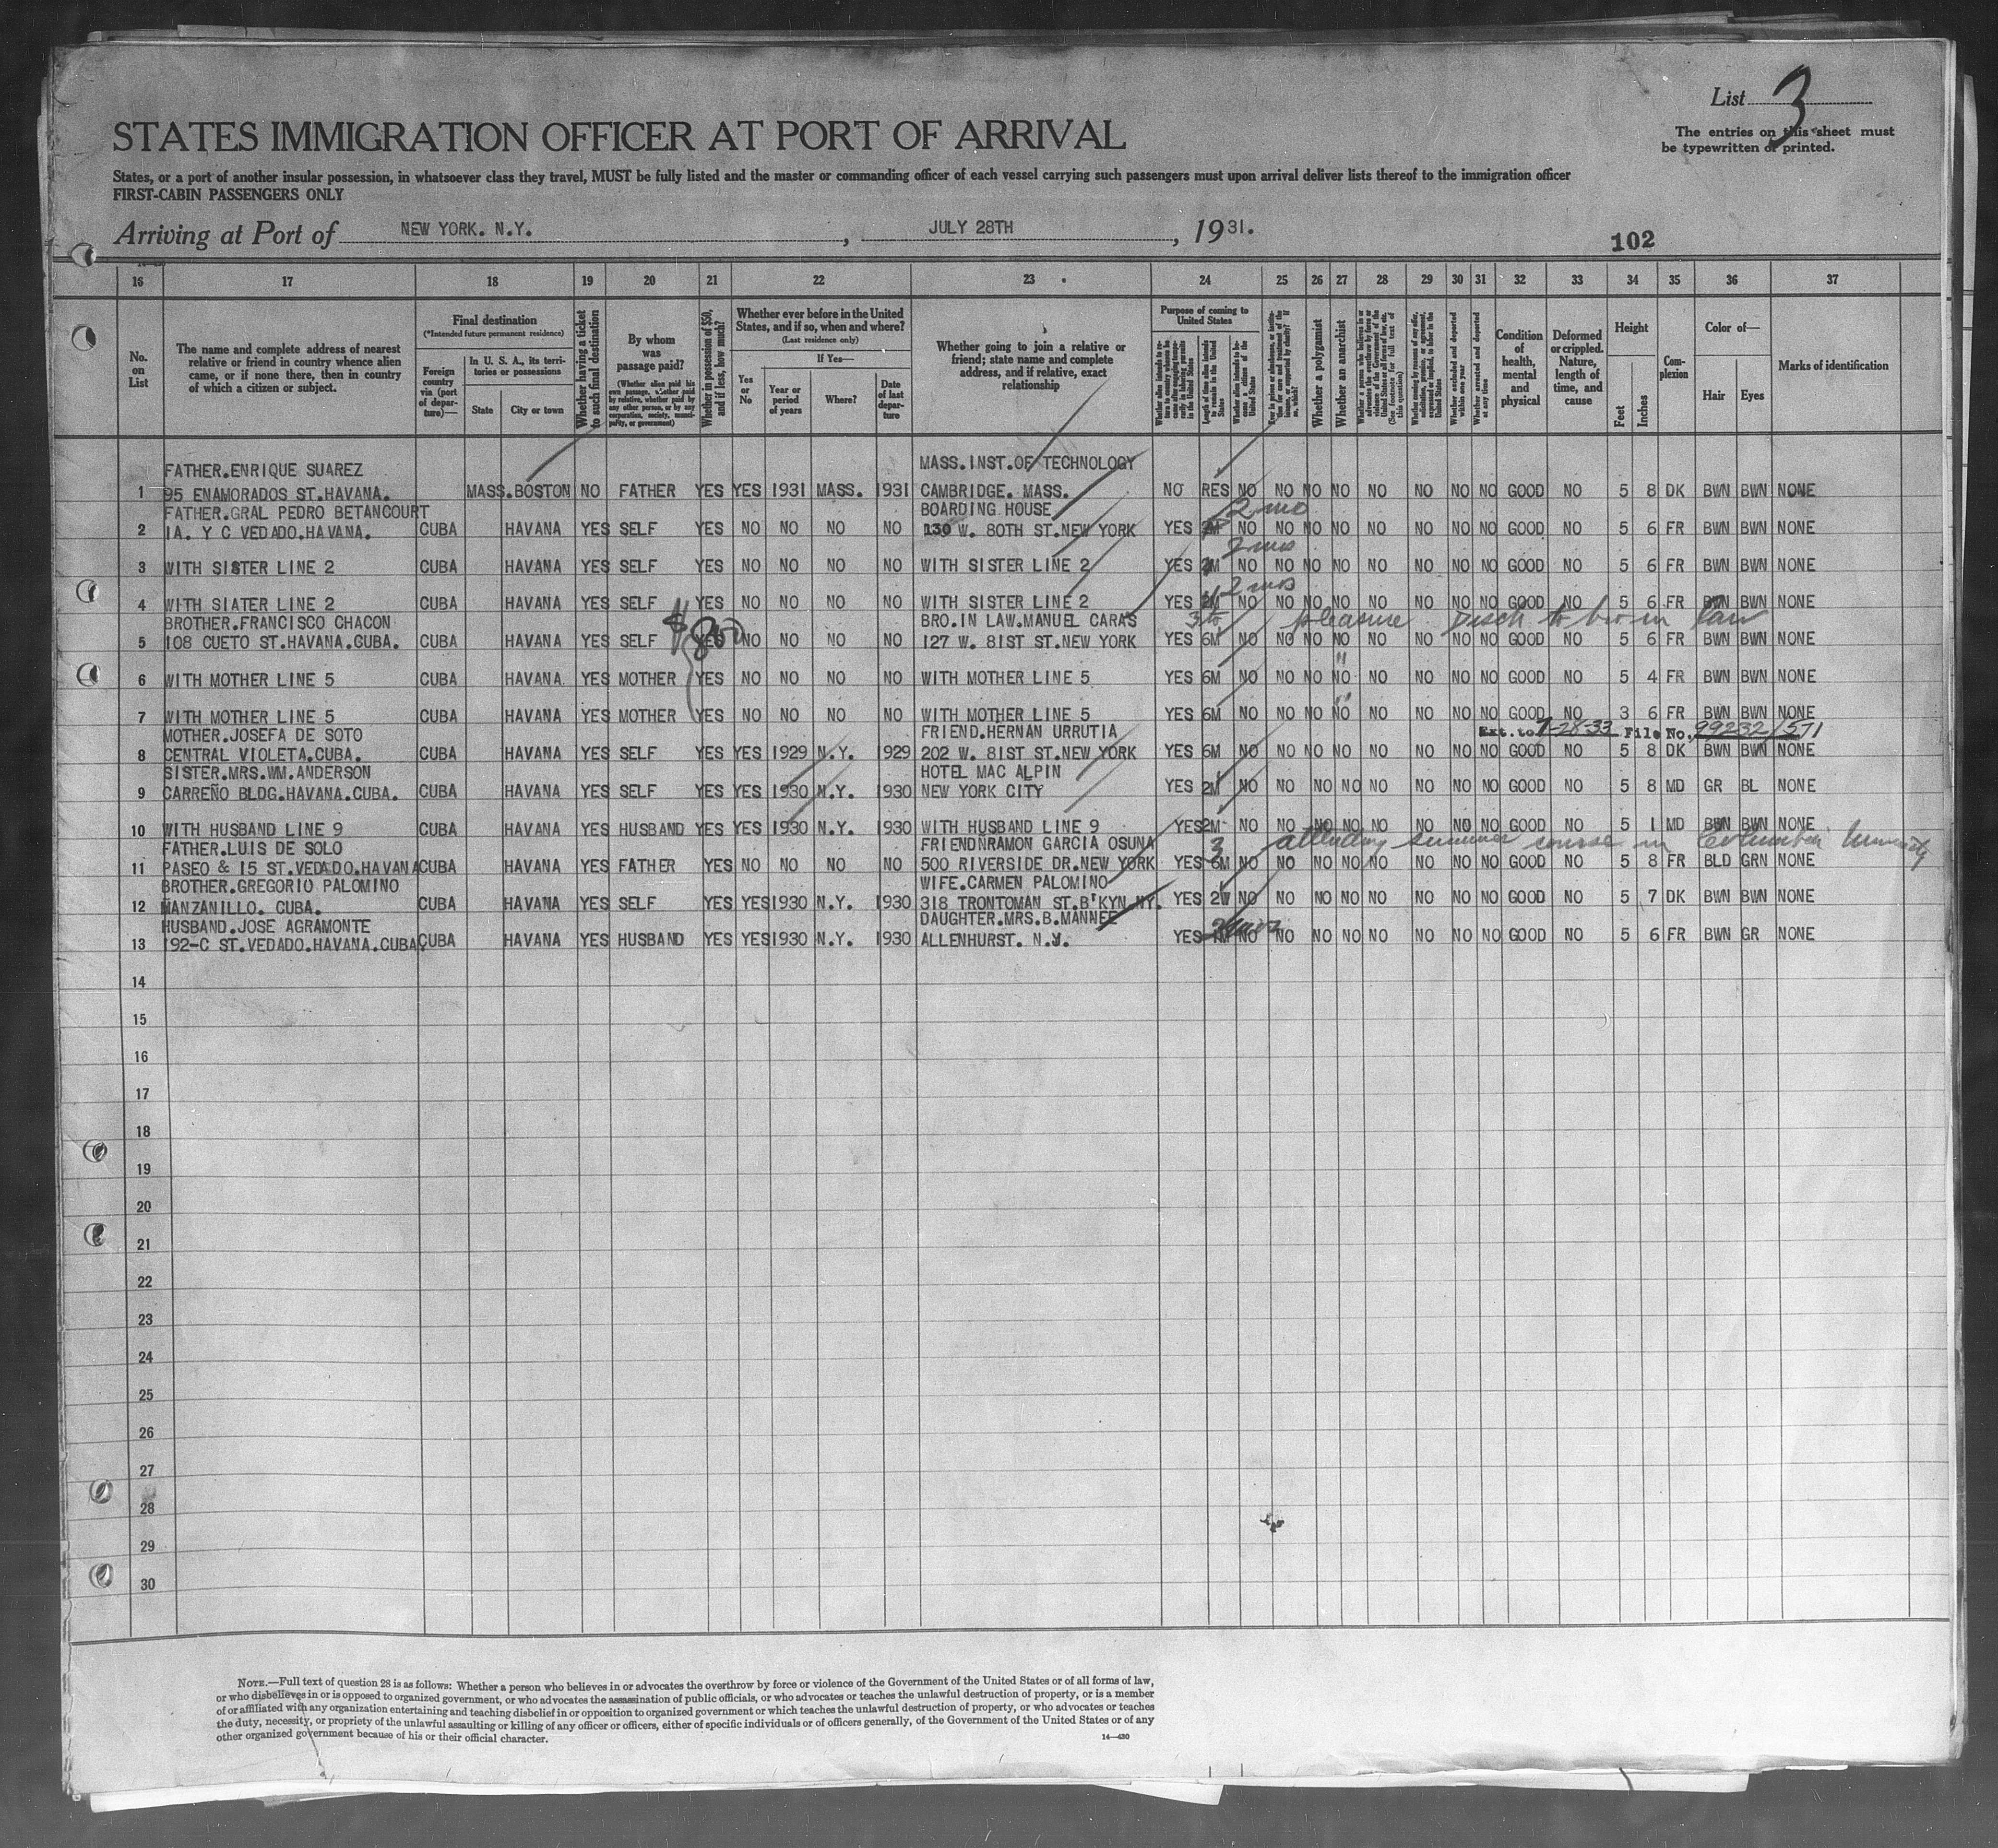 List 3
The entries on this sheet must
be typewritten or printed.
STATES IMMIGRATION OFFICER AT PORT OF ARRIVAL
States, or a port of another insular possession, in whatsoever class they travel, MUST be fully listed and the master or commanding officer of each vessel carrying such passengers must upon arrival deliver lists thereof to the immigration officer
FIRST-CABIN PASSENGERS ONLY
Arriving at Port of NEW YORK. N.Y. , JULY 28TH , 1931.
102
16 17 18 19 20 21 22 23 24 25 26 27 28 29 30 31 32 33 34 35 36 37
No. on List
The name and complete address of nearest relative or friend in country whence alien came, or if none there, then in country of which a citizen or subject.
Final destination
(*Intended future permanent residence)
Foreign country via (port of departure)—
In U. S. A., its territories or possessions
State
City or town
Whether having a ticket to such final destination
By whom was passage paid?
(Whether alien paid his own passage, whether paid by relative, whether paid by any other person, or by any corporation, society, municipality, or government)
Whether in possession of $50, and if less, how much?
Whether ever before in the United States, and if so, when and where?
(Last residence only)
If Yes—
Yes or No
Year or period of years
Where?
Date of last departure
Whether going to join a relative or friend; state name and complete address, and if relative, exact relationship
Purpose of coming to United States
Length of time alien intends to remain in the United States
Whether alien intends to become a citizen of the United States
Whether a polygamist
Whether an anarchist
Whether excluded and deported within one year
Whether arrested and deported at any time
Condition of health, mental and physical
Deformed or crippled. Nature, length of time, and cause
Height
Feet
Inches
Complexion
Color of—
Hair
Eyes
Marks of identification
FATHER.ENRIQUE SUAREZ MASS.INST.OF TECHNOLOGY
1 95 ENAMORADOS ST.HAVANA. MASS.BOSTON NO FATHER YES YES 1931 MASS. 1931 CAMBRIDGE. MASS. NO RES NO NO NO NO NO NO NO NO GOOD NO 5 8 DK BWN BWN NONE
FATHER.GRAL PEDRO BETANCOURT BOARDING HOUSE 2 mo
2 1A. Y C VEDADO.HAVANA. CUBA HAVANA YES SELF YES NO NO NO NO 130 W. 80TH ST.NEW YORK YES NO NO NO NO NO NO NO NO GOOD NO 5 6 FR BWN BWN NONE
2 mos
3 WITH SISTER LINE 2 CUBA HAVANA YES SELF YES NO NO NO NO WITH SISTER LINE 2 YES M NO NO NO NO NO NO NO NO GOOD NO 5 6 FR BWN BWN NONE
2 mos
4 WITH SIATER LINE 2 CUBA HAVANA YES SELF YES NO NO NO NO WITH SISTER LINE 2 YES M NO NO NO NO NO NO NO NO GOOD NO 5 6 FR BWN BWN NONE
BROTHER.FRANCISCO CHACON $800 BRO.IN LAW.MANUEL CARAS pleasure Disch to bro in law
5 108 CUETO ST.HAVANA.CUBA. CUBA HAVANA YES SELF YES NO NO NO NO 127 W. 81ST ST.NEW YORK YES 6M NO NO NO NO NO NO NO NO GOOD NO 5 6 FR BWN BWN NONE
"
6 WITH MOTHER LINE 5 CUBA HAVANA YES MOTHER YES NO NO NO NO WITH MOTHER LINE 5 YES 6M NO NO NO NO NO NO NO NO GOOD NO 5 4 FR BWN BWN NONE
"
7 WITH MOTHER LINE 5 CUBA HAVANA YES MOTHER YES NO NO NO NO WITH MOTHER LINE 5 YES 6M NO NO NO NO NO NO NO NO GOOD NO 3 6 FR BWN BWN NONE
MOTHER.JOSEFA DE SOTO FRIEND.HERNAN URRUTIA Ext. to 7-28-33 File No. 99232/571
8 CENTRAL VIOLETA.CUBA. CUBA HAVANA YES SELF YES YES 1929 N.Y. 1929 202 W. 81ST ST.NEW YORK YES 6M NO NO NO NO NO NO NO NO GOOD NO 5 8 DK BWN BWN NONE
SISTER.MRS.WM.ANDERSON HOTEL MAC ALPIN
9 CARREÑO BLDG.HAVANA.CUBA. CUBA HAVANA YES SELF YES YES 1930 N.Y. 1930 NEW YORK CITY YES 2M NO NO NO NO NO NO NO NO GOOD NO 5 8 MD GR BL NONE
10 WITH HUSBAND LINE 9 CUBA HAVANA YES HUSBAND YES YES 1930 N.Y. 1930 WITH HUSBAND LINE 9 YES 2M NO NO NO NO NO NO NO NO GOOD NO 5 1 MD BWN BWN NONE
FATHER.LUIS DE SOLO FRIENDNRAMON GARCIA OSUNA 3 attending summer course in Columbia University
11 PASEO & 15 ST.VEDADO.HAVANA CUBA HAVANA YES FATHER YES NO NO NO NO 500 RIVERSIDE DR.NEW YORK YES 6M NO NO NO NO NO NO NO NO GOOD NO 5 8 FR BLD GRN NONE
BROTHER.GREGORIO PALOMINO WIFE.CARMEN PALOMINO
12 MANZANILLO. CUBA. CUBA HAVANA YES SELF YES YES 1930 N.Y. 1930 318 TRONTOMAN ST.B'KYN.NY. YES 2W NO NO NO NO NO NO NO NO GOOD NO 5 7 DK BWN BWN NONE
HUSBAND.JOSE AGRAMONTE DAUGHTER.MRS.B.MANNEE
13 192-C ST.VEDADO.HAVANA.CUBA. CUBA HAVANA YES HUSBAND YES YES 1930 N.Y. 1930 ALLENHURST. N.J. YES NO NO NO NO NO NO NO NO GOOD NO 5 6 FR BWN GR NONE
14
15
16
17
18
19
20
21
22
23
24
25
26
27
28
29
30
NOTE.—Full text of question 28 is as follows: Whether a person who believes in or advocates the overthrow by force or violence of the Government of the United States or of all forms of law,
or who disbelieves in or is opposed to organized government, or who advocates the assassination of public officials, or who advocates or teaches the unlawful destruction of property, or is a member
of or affiliated with any organization entertaining and teaching disbelief in or opposition to organized government or which teaches the unlawful destruction of property, or who advocates or teaches
the duty, necessity, or propriety of the unlawful assaulting or killing of any officer or officers, either of specific individuals or of officers generally, of the Government of the United States or of any
other organized government because of his or their official character.
14—430